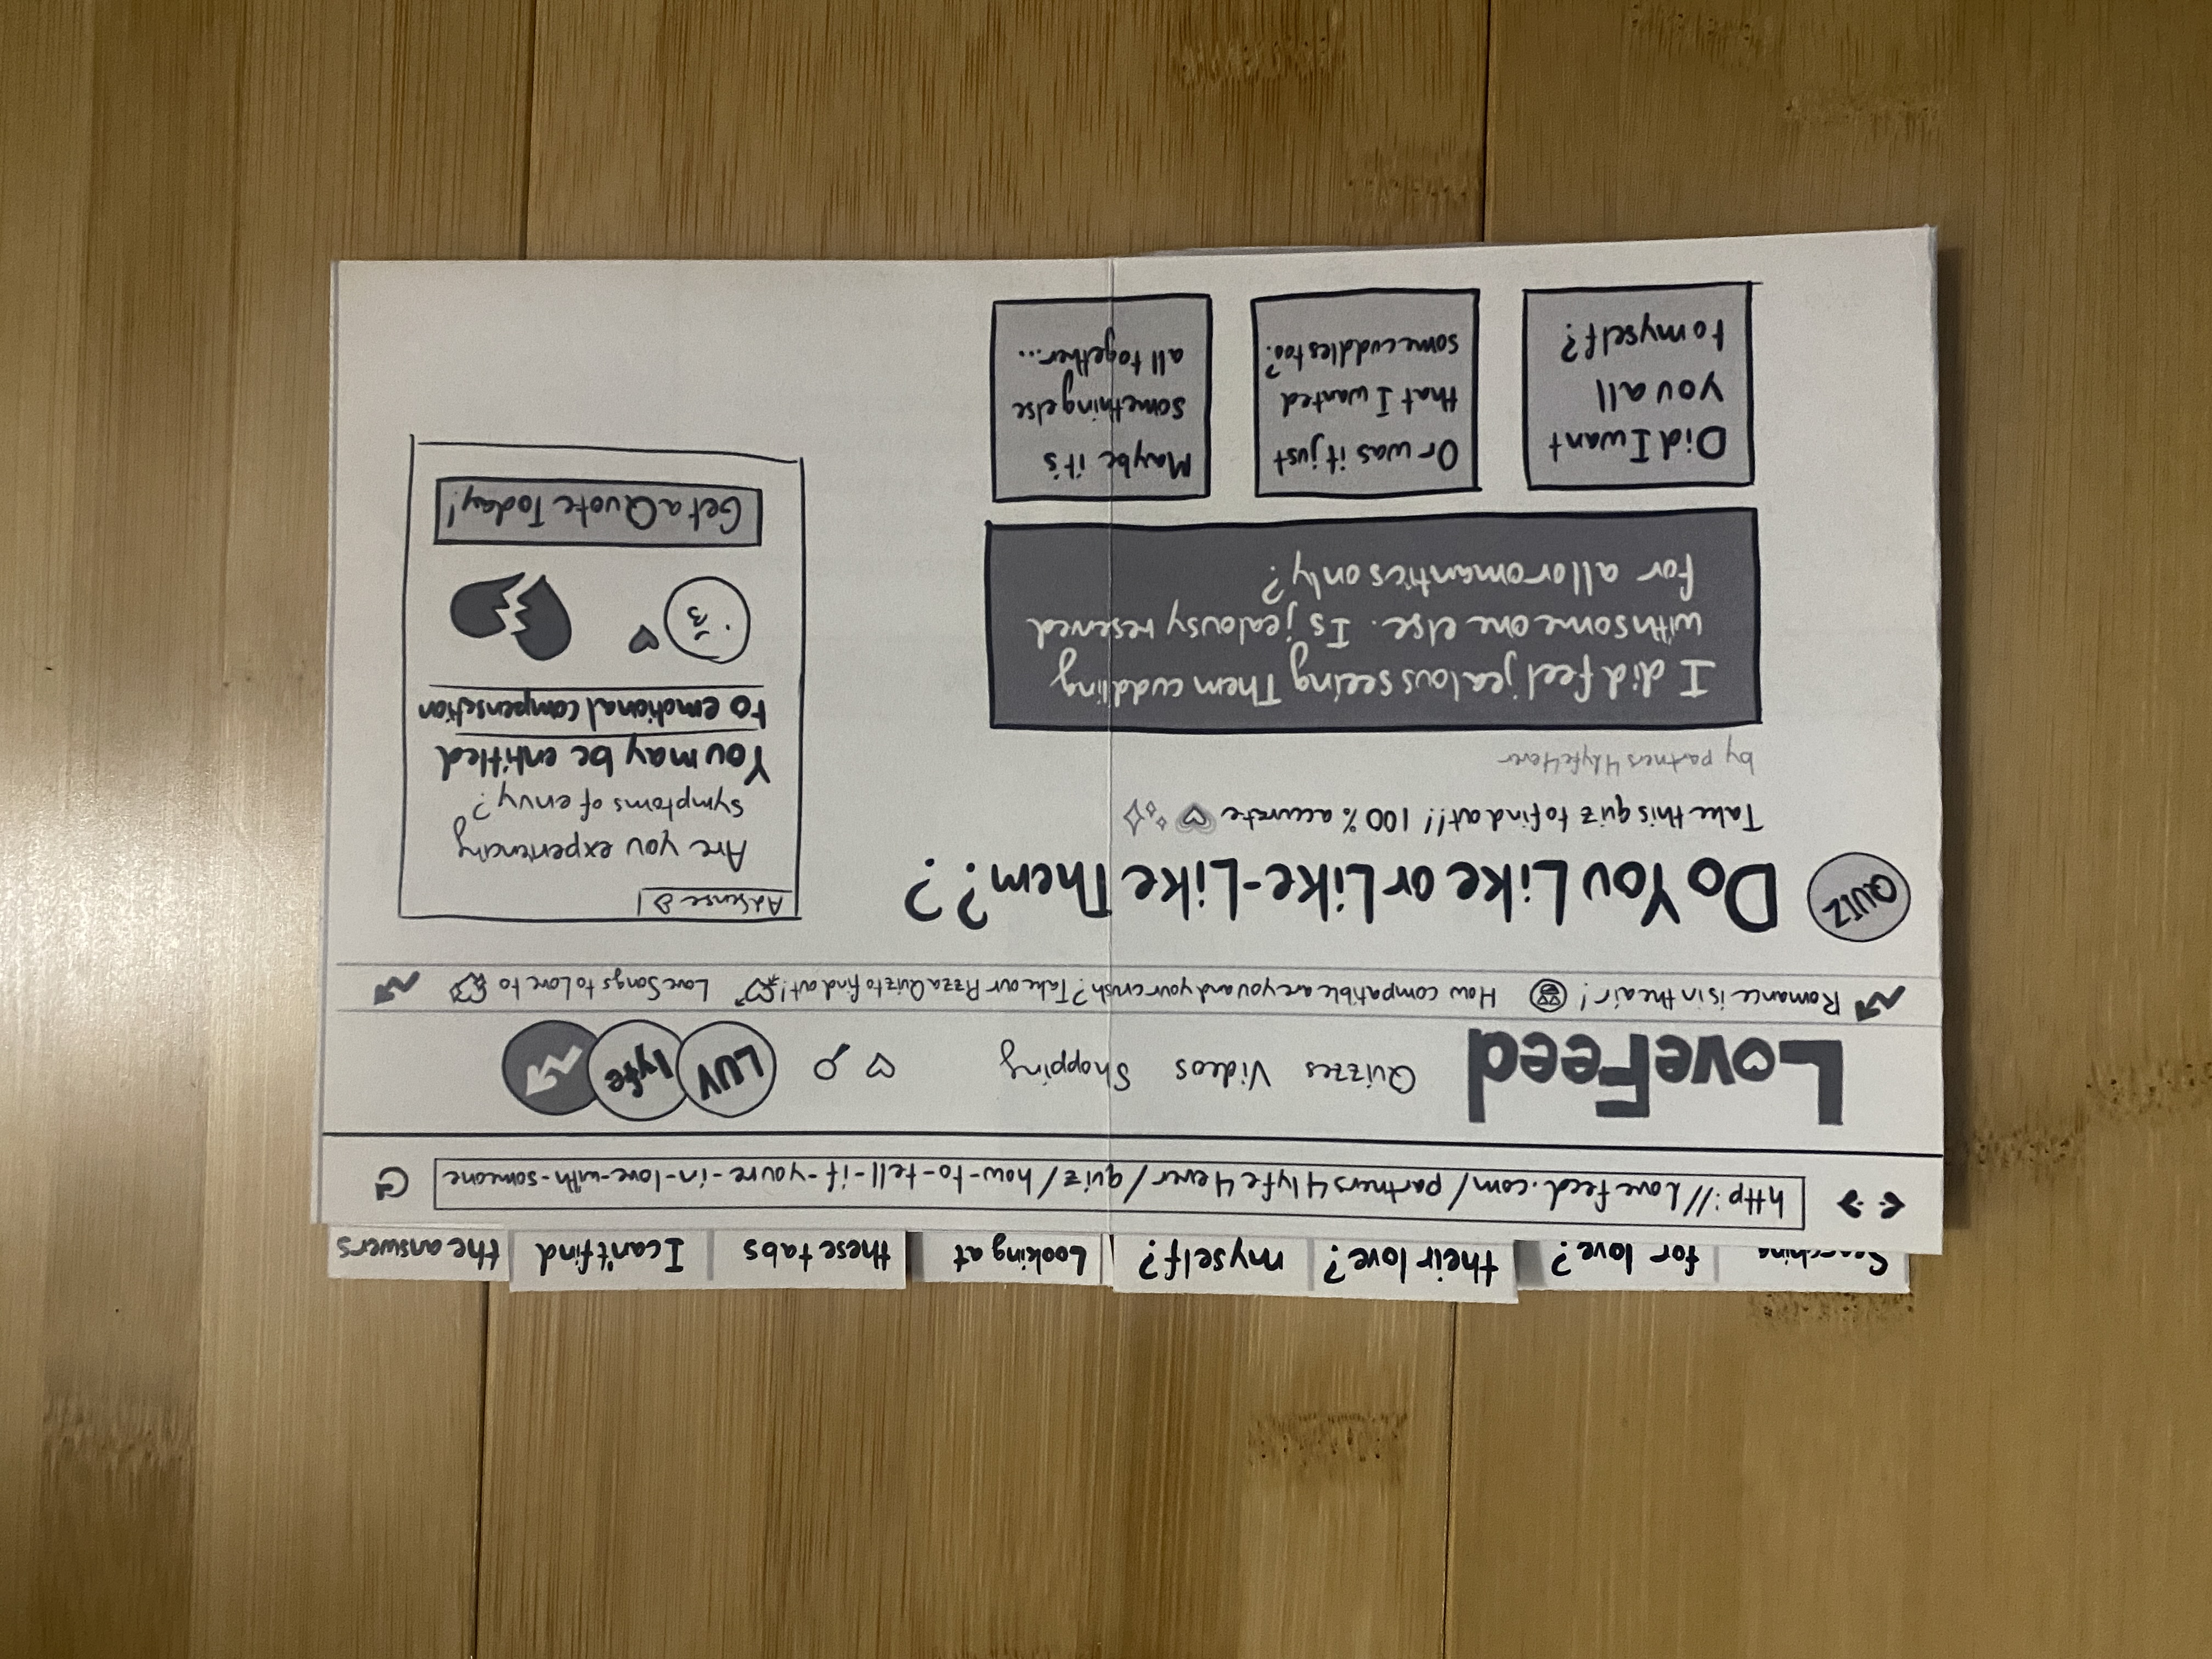 Searching
for love?
their love?
myself?
Looking at
these tabs
I can't find
the answers
http://lovefeed.com/partners4lyfe4ever/quiz/how-to-tell-if-youre-in-love-with-someone
LoveFeed
Quizzes Videos Shopping
LUV
lyfe
Romance is in the air! How compatible are you and your crush? Take our Pizza Quiz to find out! Love Songs to Love to
QUIZ
Do You Like or Like-Like Them??
Take this quiz to find out!! 100% accurate
by partners4lyfe4ever
I did feel jealous seeing Them cuddling
with someone else. Is jealousy reserved
for alloromantics only?
Did I want
you all
to myself?
Or was it just
that I wanted
some cuddles too?
Maybe it's
something else
all together...
AdSense
Are you experiencing
symptoms of envy?
You may be entitled
to emotional compensation
Get a Quote Today!